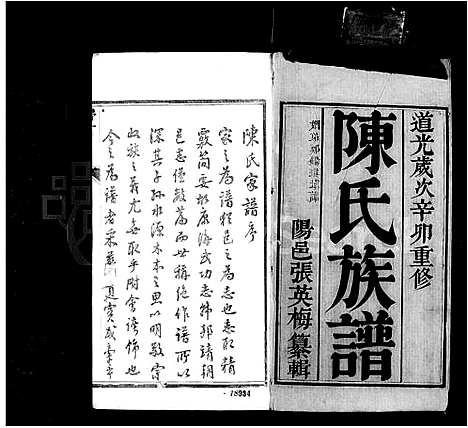 道光歲次辛卯重修
陳氏族譜
陽邑張英梅纂輯
陳氏家譜序
家之為譜猶邑之為志也志取精
覈簡要如康海武功志韓邦靖朝
邑志僅數篇而世稱絕作譜所以
深其子孫水源木本之思以明敬宗
收族之義尤安取乎附會誇飾也
今之為譜者采
18934